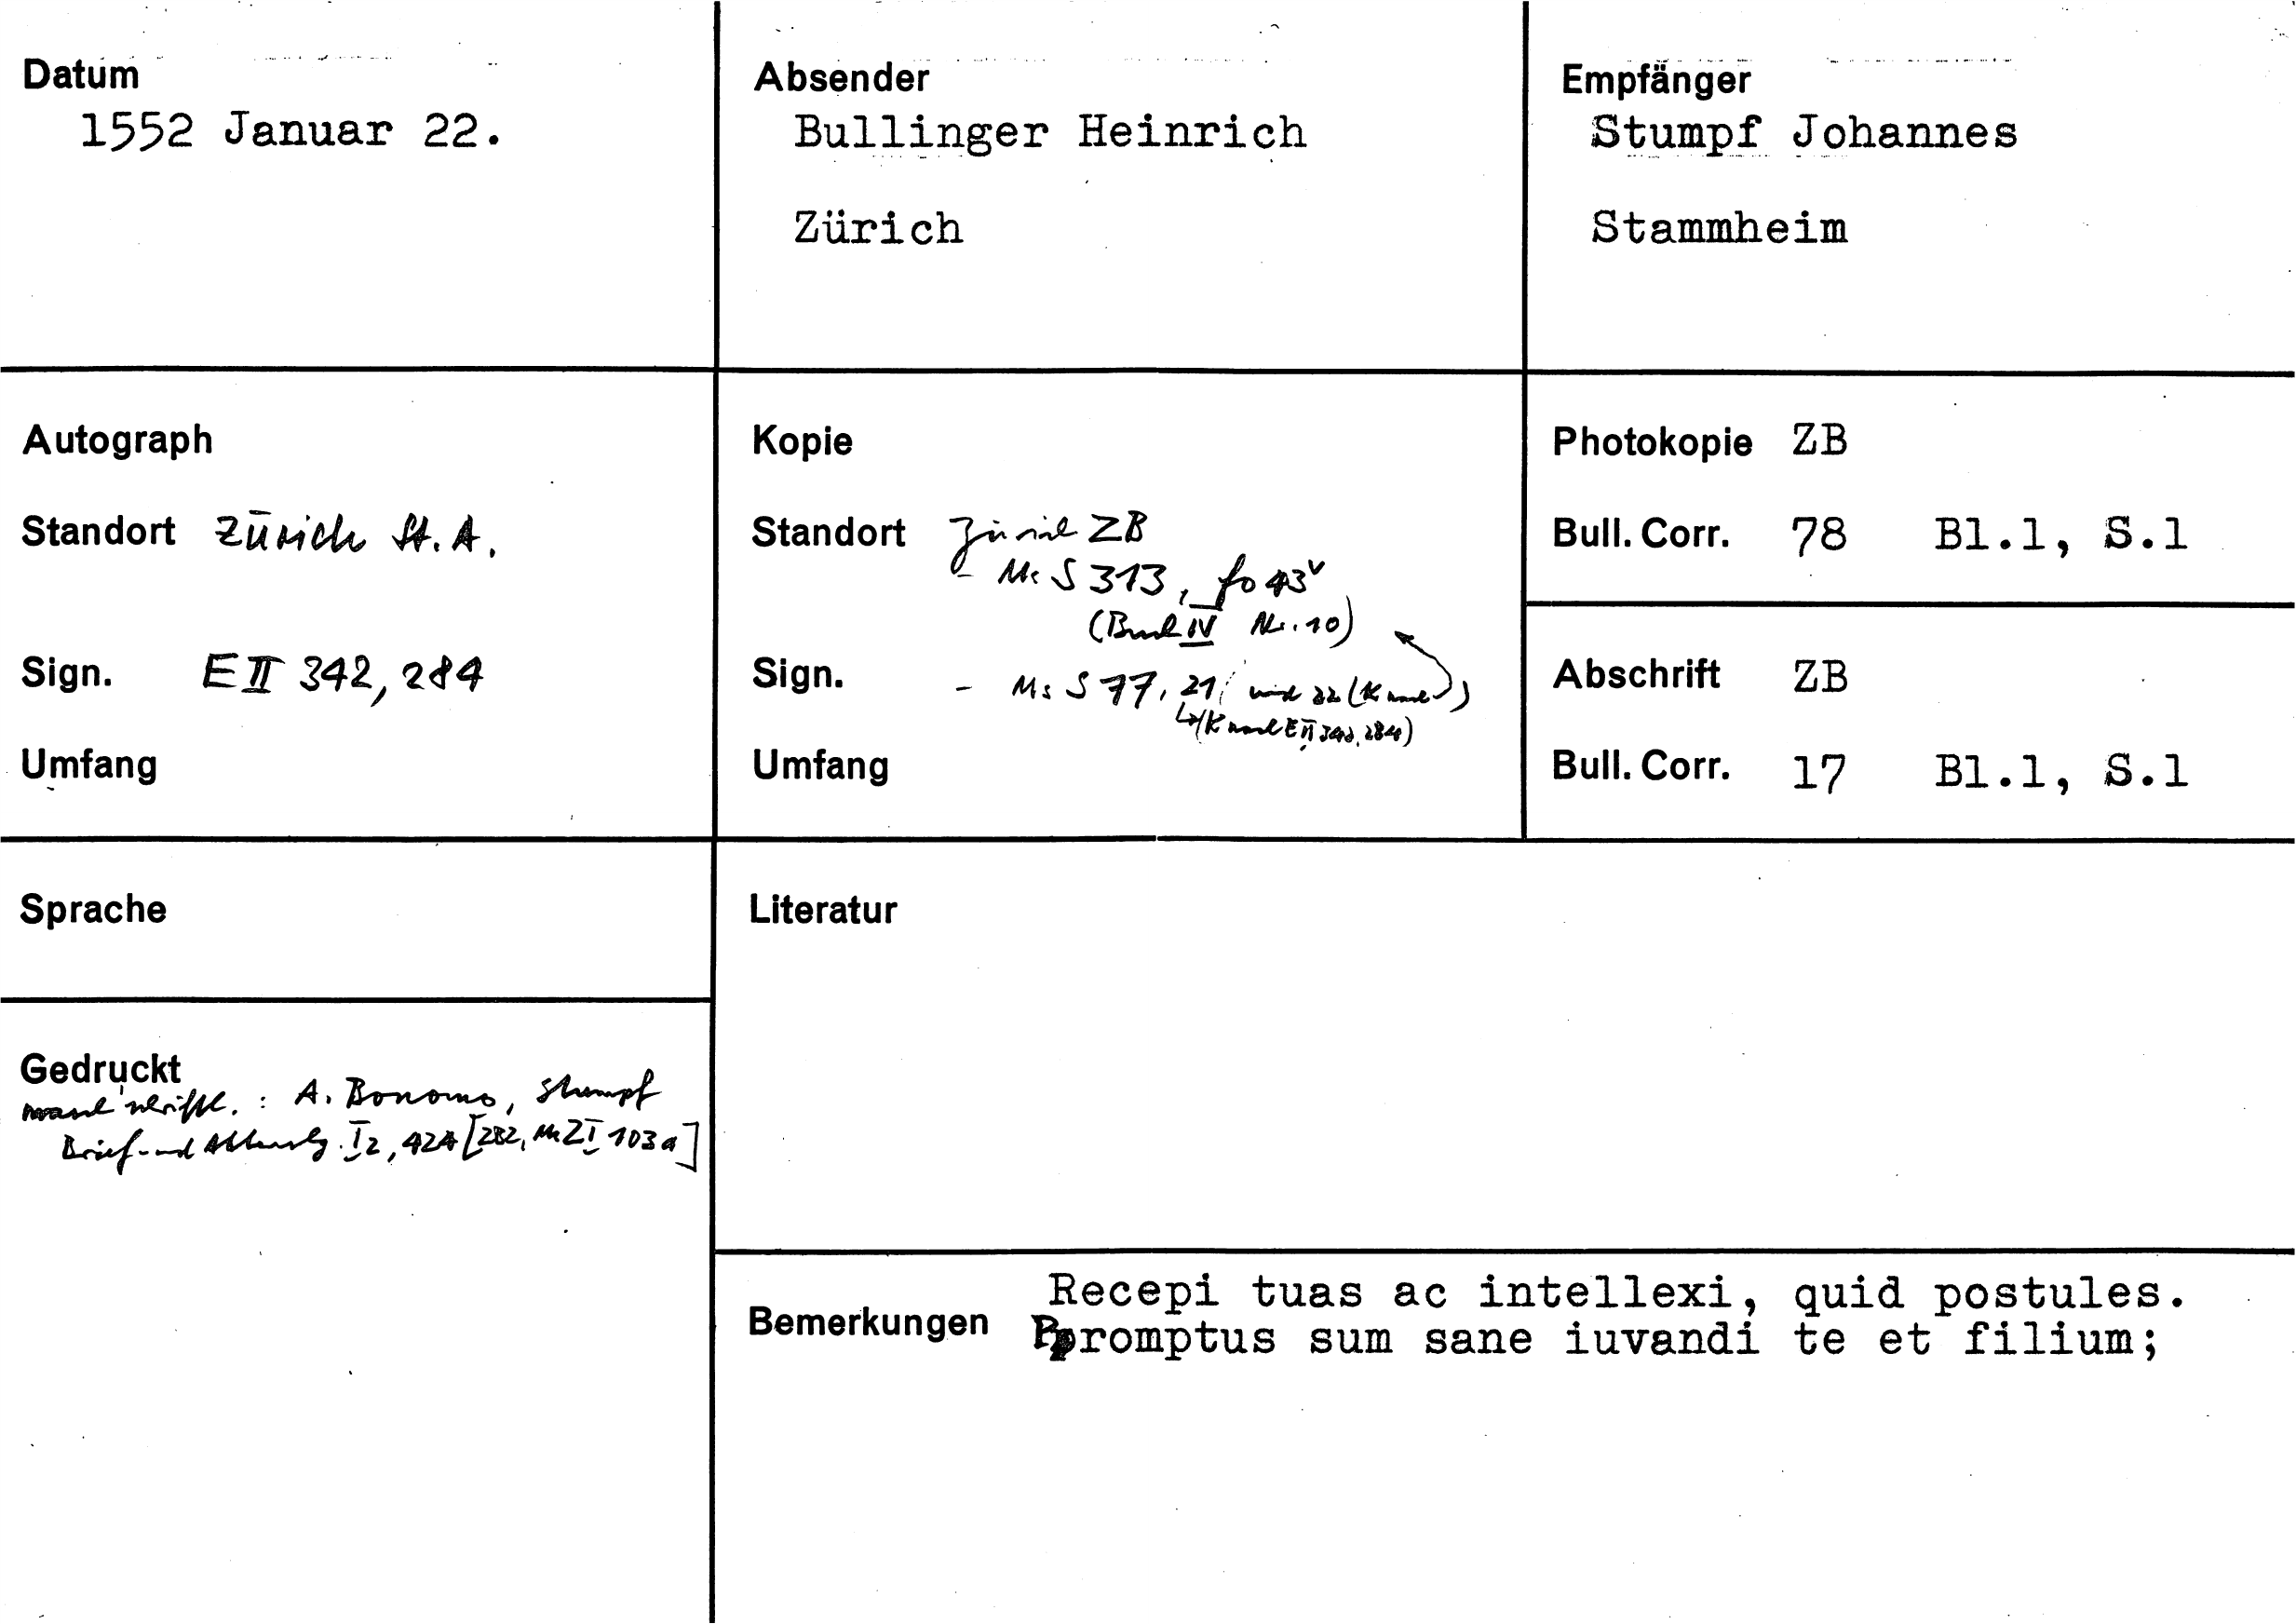 Datum
1552 Januar 22.
Absender
Bullinger Heinrich
Zürich
Empfänger
Stumpf Johannes
Stammheim
Autograph
Standort Zürich St. A.
Sign. E II 342, 284
Umfang
Kopie
Standort Zürich ZB
- Ms S 313, fo 43v
(Band IV Nr. 10)
Sign. - Ms S 77, 21, und 22 (K nach )
(K nach E II 342, 284)
Umfang
Photokopie ZB
Bull. Corr. 78 Bl.1, S.1
Abschrift ZB
Bull. Corr. 17 Bl.1, S.1
Sprache
Literatur
Gedruckt
: A. Bonomo, Stumpf
Brief- und I2, 424 [282, Ms Z I 103a]
Bemerkungen Recepi tuas ac intellexi, quid postules.
Promptus sum sane iuvandi te et filium;